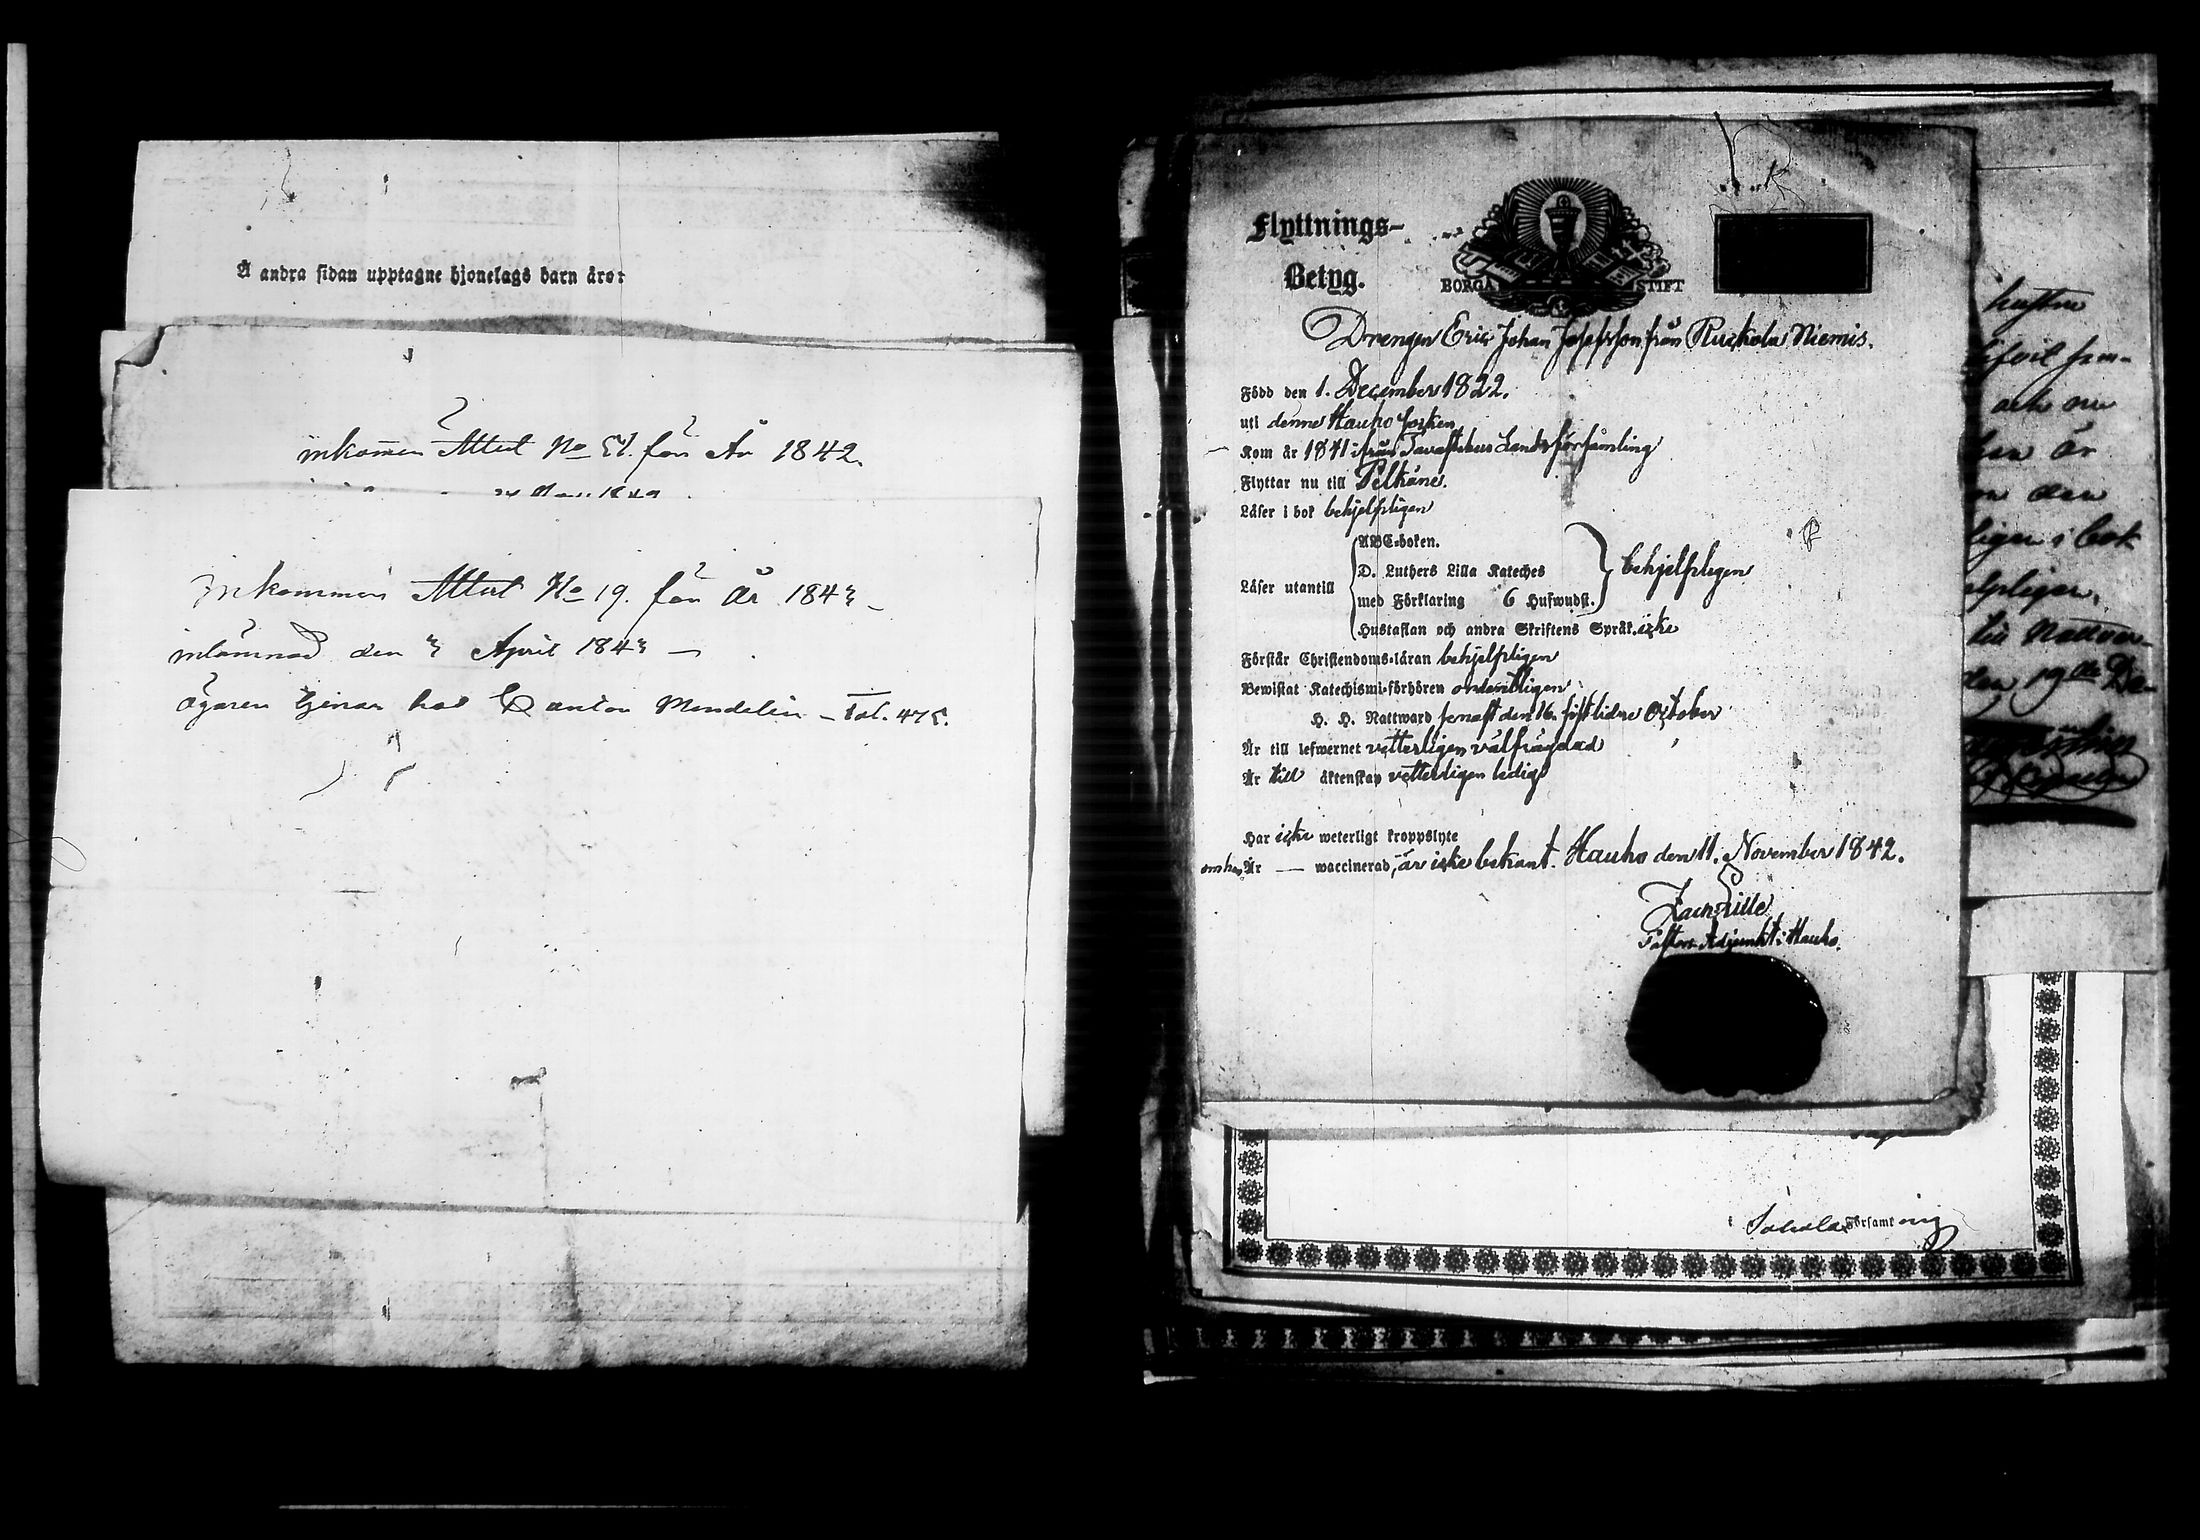 Å andra sidan upptagne hjonelags barn äro:
inkommen Attest No 51. för År 1842.
Inkommen Attest No 19. för År 1843
inlämnad den 3 April 1843
ägaren tjenar hos Cantor Mendelin Fol. 475.
Flyttnings-
Betyg.
BORGÅ STIFT
Drengen Eric Johan Josefsson från Ruckola Niemis.
Född den 1. December 1822.
uti denne Hauho socken
Kom år 1841 ifrån Tavastehus Landsförsamling
Flyttar nu till Pelkäne.
Läser i bok behjelpligen
ABC-boken.
D. Luthers Lilla Kateches
Läser utantill med Förklaring 6 Hufwudst. behjelpligen
Hustaflan och andra Skriftens Språk. icke
Förstår Christendoms-läran behjelpligen
Bewistat Katechismi-förhören ordentligen
H. H. Nattward senast den 16. sistlidne October
Är till lefwernet vetterligen välfrägdad
Är till äktenskap vetterligen ledig
Har icke weterligt kroppslyte
om han Är — waccinerad, är icke bekant. Hauho den 11. November 1842.
Zach. Lille
Pastors Adjunkt i Hauho.
och nu
är
den
i bok
Nattvar-
den 19de De-
i Församling